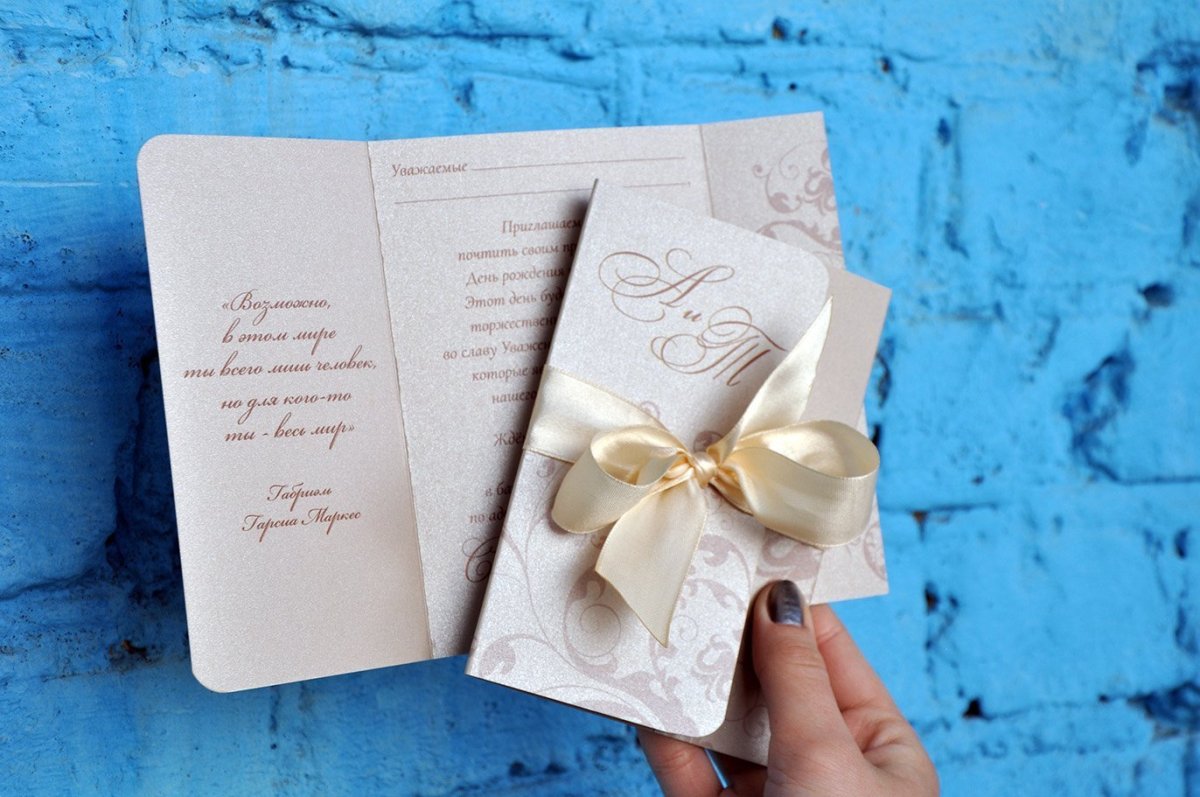 «Возможно,
в этом мире
ты всего лиш человек,
но для кого-то
ты - весь мир»
Габриэль
Гарсиа Маркес
Уважаемые
Приглашаем
почтить своим
День рождения
Этот день
торжествен
во славу
которые
нашего
в
по
А и Т